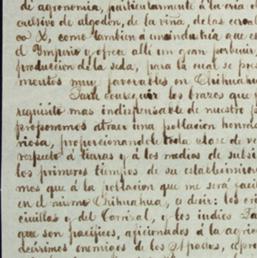 de agronomia, particularmente á la cria
cultivo de algodon, de la viña, de las
como tambien á una industria que es
el Ymperio y ofrece alli un gran porbenir,
produccion de la seda, para la cual se pres
mentos muy favorables en Chihuahua
los brazos que
requisito mas indispensable de nuestro p
proponemos atraer una poblacion honra
riosa, proporcionandole toda clase de ve
respecto á tierras y á los medios de subsis
los primeros tiempos de su establecimien
mos que á la poblacion que me será faci
en el mismo Chihuahua, á decir: los
y del Carrizal, y los indios
que son pacificos, aficionados á la agri
enemigos de los Apaches,